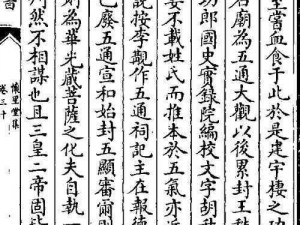 里當血食于此於是建宇棲之功
名廟為五通大觀以後累封王秩
功郎國史實錄院編校文字胡
妄不載姓氏而推本於五氣亦近
說按李觀作五通祠記主在報德
已廢五通宣和始封五顯審爾則
為華光藏菩薩之化夫自執一
判然不相謀也且三皇二帝固皆
堂集
卷三十